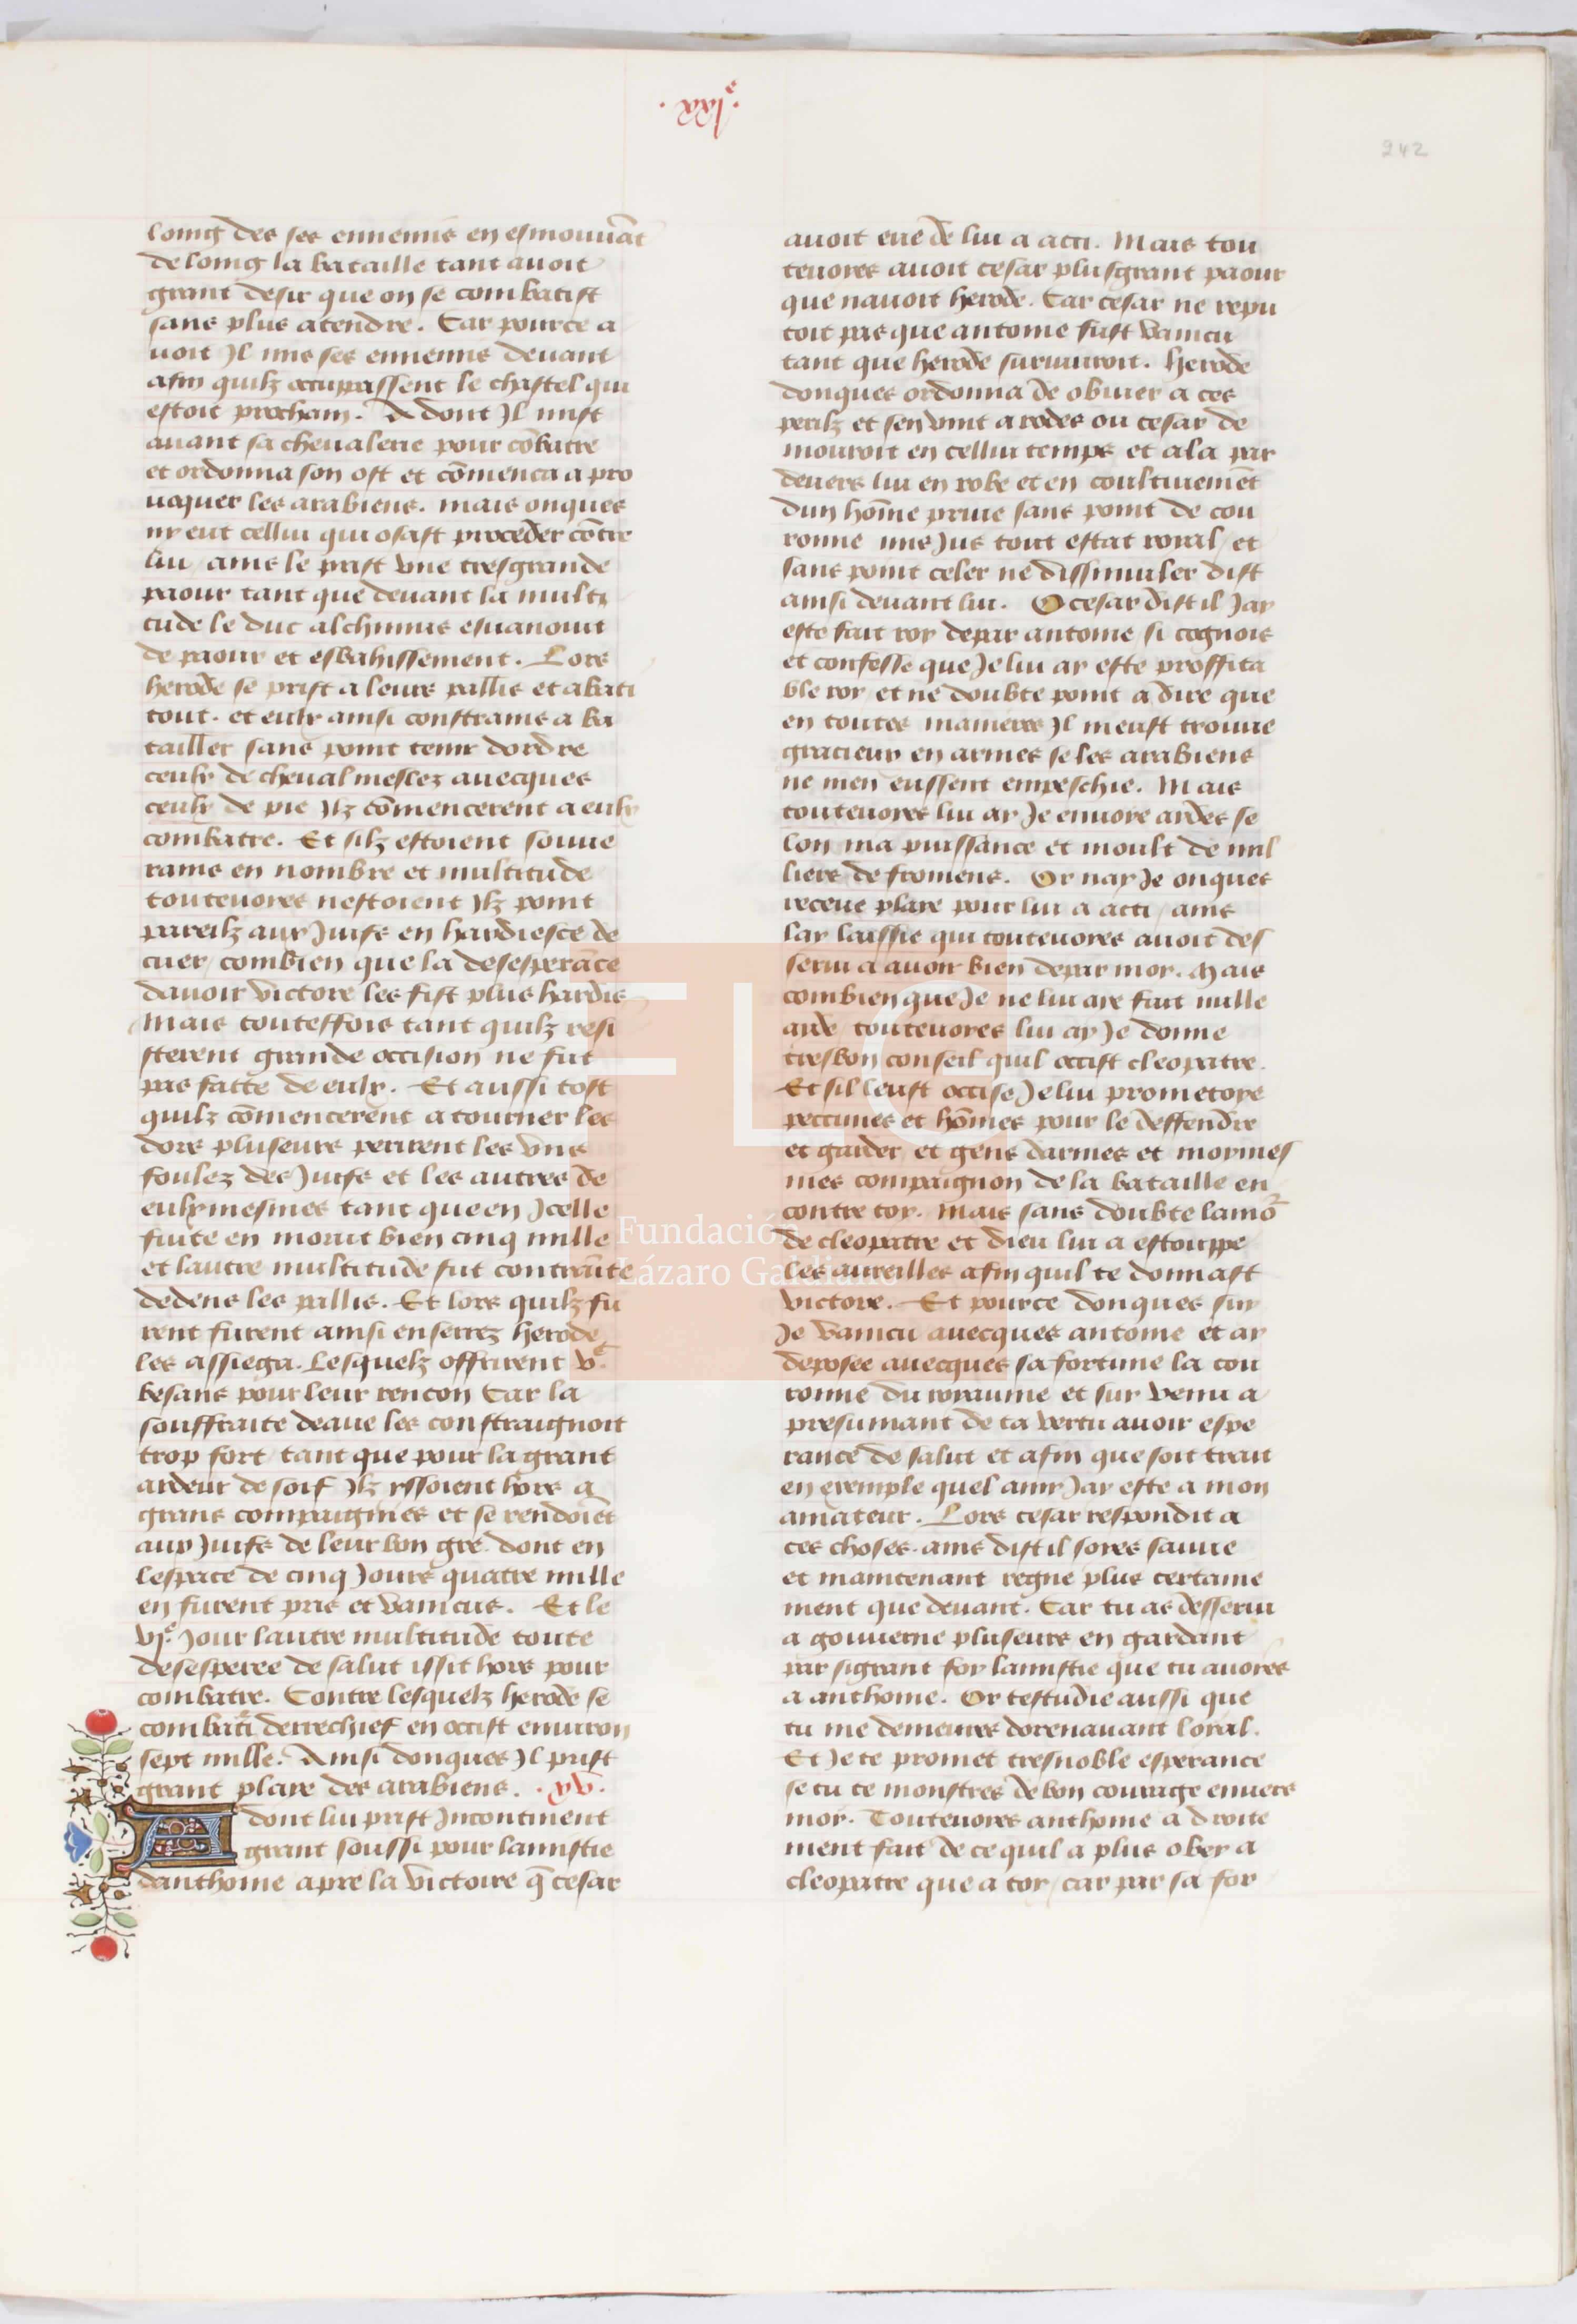 .xxl.e
242
loing des ses ennemis en esmouuāt
de loing la bataille tant auoit
grant desir que on se combatist
sans plus atendre. Car pource a
uoit Il mis ses ennemis deuant
afin quilz occupassent le chastel qui
estoit prochain. Adont Il mist
auant sa cheualerie pour cōbatre
et ordonna son ost et cōmenca a pro
uoquer les arabiens. mais onques
ny eut cellui qui osast proceder cōtre
lui / ains le prist vne tresgrande
paour tant que deuant la multi
tude le duc alchimus esuanouit
de paour et esbahissement. Lors
herode se prist a leurs pallis et abati
tout. et eulx ainsi constrains a ba
tailler sans point tenir dordre
ceulx de cheual meslez auecques
ceulx de pie Ilz cōmencerent a eulx
combatre. Et silz estoient souue
rains en nombre et multitude
touteuoyes nestoient Ilz point
pareilz aux Juifs en hardiesce de
cuer / combien que la desesperāce
dauoir victore les fist plus hardis
Mais touteffois tant quilz resi
sterent grande occision ne fut
pas faite de eulx. Et aussi tost
quilz cōmencerent a tourner les
dors pluseurs perirent les vns
foulez des Juifs et les autres de
eulxmesmes tant que en Jcelle
fuite en morut bien cinq mille
et lautre multitude fut contrainte
dedens les pallis. Et lors quilz fu
rent furent ainsi enserrez herode
les assiega. Lesquelz offrirent v.c
besans pour leur rencon Car la
souffraite deaue les constraignoit
trop fort / tant que pour la grant
ardeur de soif Ilz yssoient hors a
grans compaignies et se rendoiēt
aux Juifs de leur bon gre. dont en
lespace de cinq Jours quatre mille
en furent pris et vaincus. Et le
vj.e Jour lautre multitude toute
desesperee de salut issit hors pour
combatre. Contre lesquelz herode se
combati derrechief en occist enuiron
sept mille. Ainsi donques Il prist
grant playe des arabiens. .xv.
Adont lui prist Incontinent
grant soussi pour lamistie
danthoine apre la victoire q̄ cesar
auoit eue de lui a acti. Mais tou
teuoyes auoit cesar plusgrant paour
que nauoit herode. Car cesar ne repu
toit pas que antoine fust vaincu
tant que herode suruiuroit. herode
donques ordonna de obuier a ces
perilz et sen vint a rodes ou cesar de
mouroit en cellui temps et ala par
deuers lui en robe et en coultiuemēt
dun hōme priue sans point de cou
ronne mis Jus tout estat royal / et
sans point celer ne dissimuler dist
ainsi deuant lui. O cesar dist il Jay
este fait roy depar antoine / si cognois
et confesse que Je lui ay este proffita
ble roy et ne doubte point a dire que
en toutes manieres Il meust trouue
gracieux en armes se les arabiens
ne men eussent empeschie. Mais
touteuoyes lui ay Je enuoye aydes se
lon ma puissance et moult de mil
liers de fromens. Or nay Je onques
receue playe pour lui a acti / ains
lay laissie qui touteuoyes auoit des
serui a auoir bien depar moy. Mais
combien que Je ne lui aye fait nulle
ayde touteuoyes lui ay Je donne
tresbon conseil quil occist cleopatre.
Et sil leust occise Je lui prometoye
peccunes et hōmes pour le deffendre
et garder et gens darmes et moymes
mes compaignon de la bataille en
contre toy. Mais sans doubte lamor
de cleopatre et dieu lui a estouppe
les aureilles afin quil te donnast
victoire. Et pource donques suy
Je vaincu auecques antoine et ay
deposee auecques sa fortune la cou
ronne du royaume et sur venu a
presumant de ta vertu auoir espe
rance de salut et afin que soit trait
en exemple quel amy Jay este a mon
amateur. Lors cesar respondit a
ces choses. ains dist il soyes sauue
et maintenant regne plus certaine
ment que deuant. Car tu as desserui
a gouuerne pluseurs en gardant
par sigrant foy lamistie que tu auoyes
a anthoine. Or testudie aussi que
tu me demeures dorenauant loyal.
Et Je te promet tresnoble esperance
se tu te monstres de bon courage enuers
moy. Touteuoyes anthoine a droite
ment fait de ce quil a plus obey a
cleopatre que a toy / car par sa for
Fundación
Lázaro Galdiano